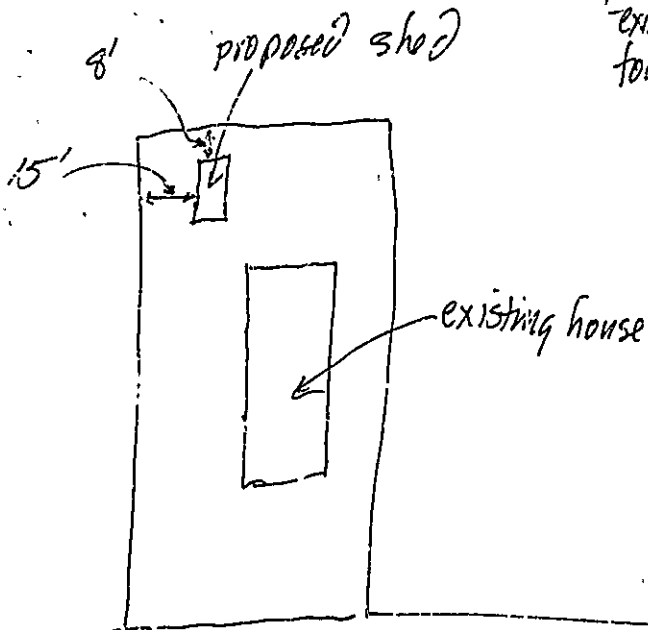 8'
proposed shed
15'
existing house